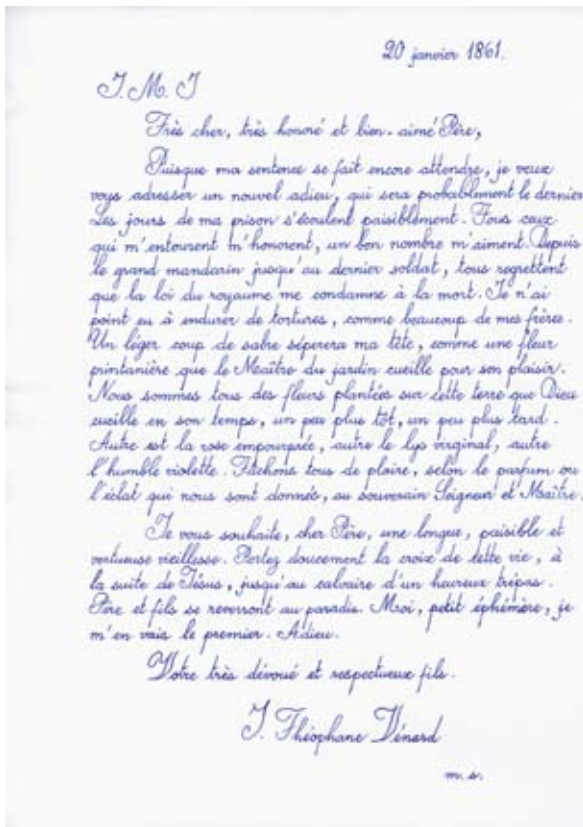 20 janvier 1861.
J. M. J
Très cher, très honoré et bien-aimé Père,
Puisque ma sentence se fait encore attendre, je veux
vous adresser un nouvel adieu, qui sera probablement le dernier
Les jours de ma prison s'écoulent paisiblement. Tous ceux
qui m'entourent m'honorent, un bon nombre m'aiment. Depuis
le grand mandarin jusqu'au dernier soldat, tous regrettent
que la loi du royaume me condamne à la mort. Je n'ai
point eu à endurer de tortures, comme beaucoup de mes frères.
Un léger coup de sabre séparera ma tête, comme une fleur
printanière que le Maître du jardin cueille pour son plaisir.
Nous sommes tous des fleurs plantées sur cette terre que Dieu
cueille en son temps, un peu plus tôt, un peu plus tard.
Autre est la rose empourprée, autre le lys virginal, autre
l'humble violette. Tâchons tous de plaire, selon le parfum ou
l'éclat qui nous sont donnés, au souverain Seigneur et Maître.
Je vous souhaite, cher Père, une longue, paisible et
vertueuse vieillesse. Portez doucement la croix de cette vie, à
la suite de Jésus, jusqu'au calvaire d'un heureux trépas.
Père et fils se reverront au paradis. Moi, petit éphémère, je
m'en vais le premier. Adieu.
Votre très dévoué et respectueux fils.
J. Théophane Vénard
m.s.